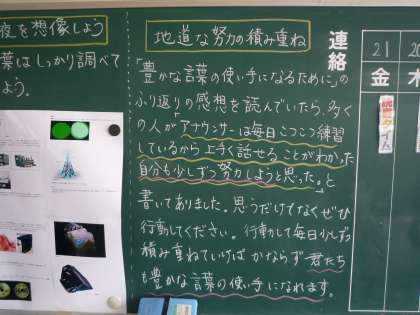 夜を想像しよう
葉はしっかり調べて
よう。
地道な努力の積み重ね
「豊かな言葉の使い手になるために」の
ふり返りの感想を読んでいたら、多く
の人が「アナウンサーは毎日こつこつ練習
しているから上手く話せることがわかった
自分も少しずつ努力しようと思った。」と
書いてありました。思うだけでなくぜひ
行動してください。行動して毎日少しずつ
積み重ねていけばかならず君たち
も豊かな言葉の使い手になれます。
連絡
21
金
読書タイム
20
木